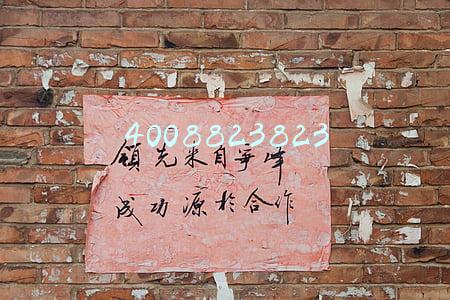 4008823823
领先来自争峰
成功源於合作